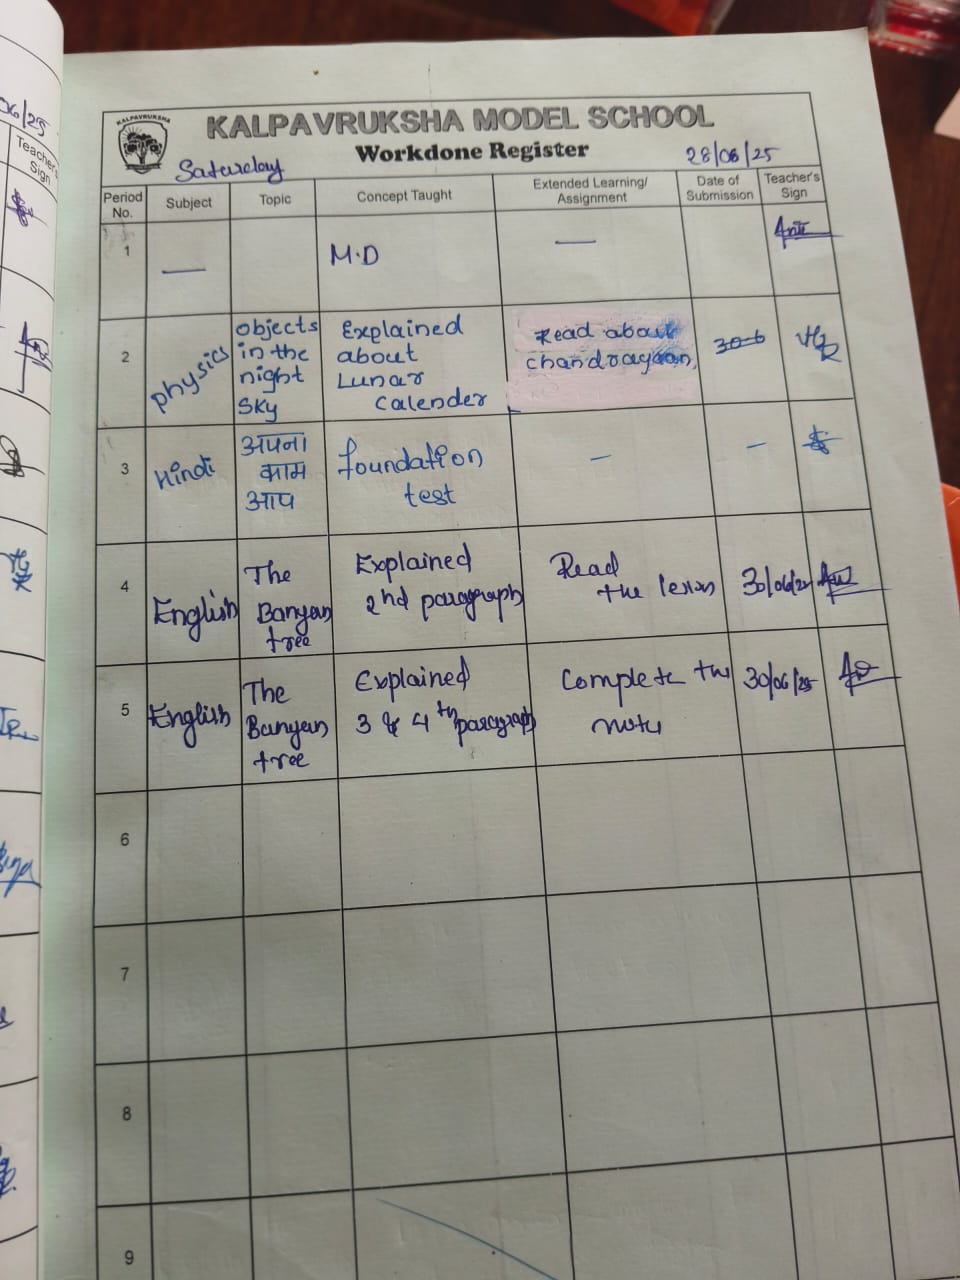 06/25
Teacher's
Sign
KALPAVRUKSHA
KALPAVRUKSHA MODEL SCHOOL
Workdone Register
Saturday
28/06/25
Period No.
Subject
Topic
Concept Taught
Extended Learning/ Assignment
Date of Submission
Teacher's Sign
1
—
M.D
—
2
physics
objects
in the
night
sky
Explained
about
Lunar
Calender
Read about
chandrayaan,
30-6
3
Hindi
अपना
काम
आप
foundation
test
—
—
4
English
The
Banyan
tree
Explained
2nd paragraph
Read
the lesson
30/06/25
5
English
The
Banyan
tree
Explained
3 & 4th paragraph
Complete the
note
30/06/25
6
7
8
9